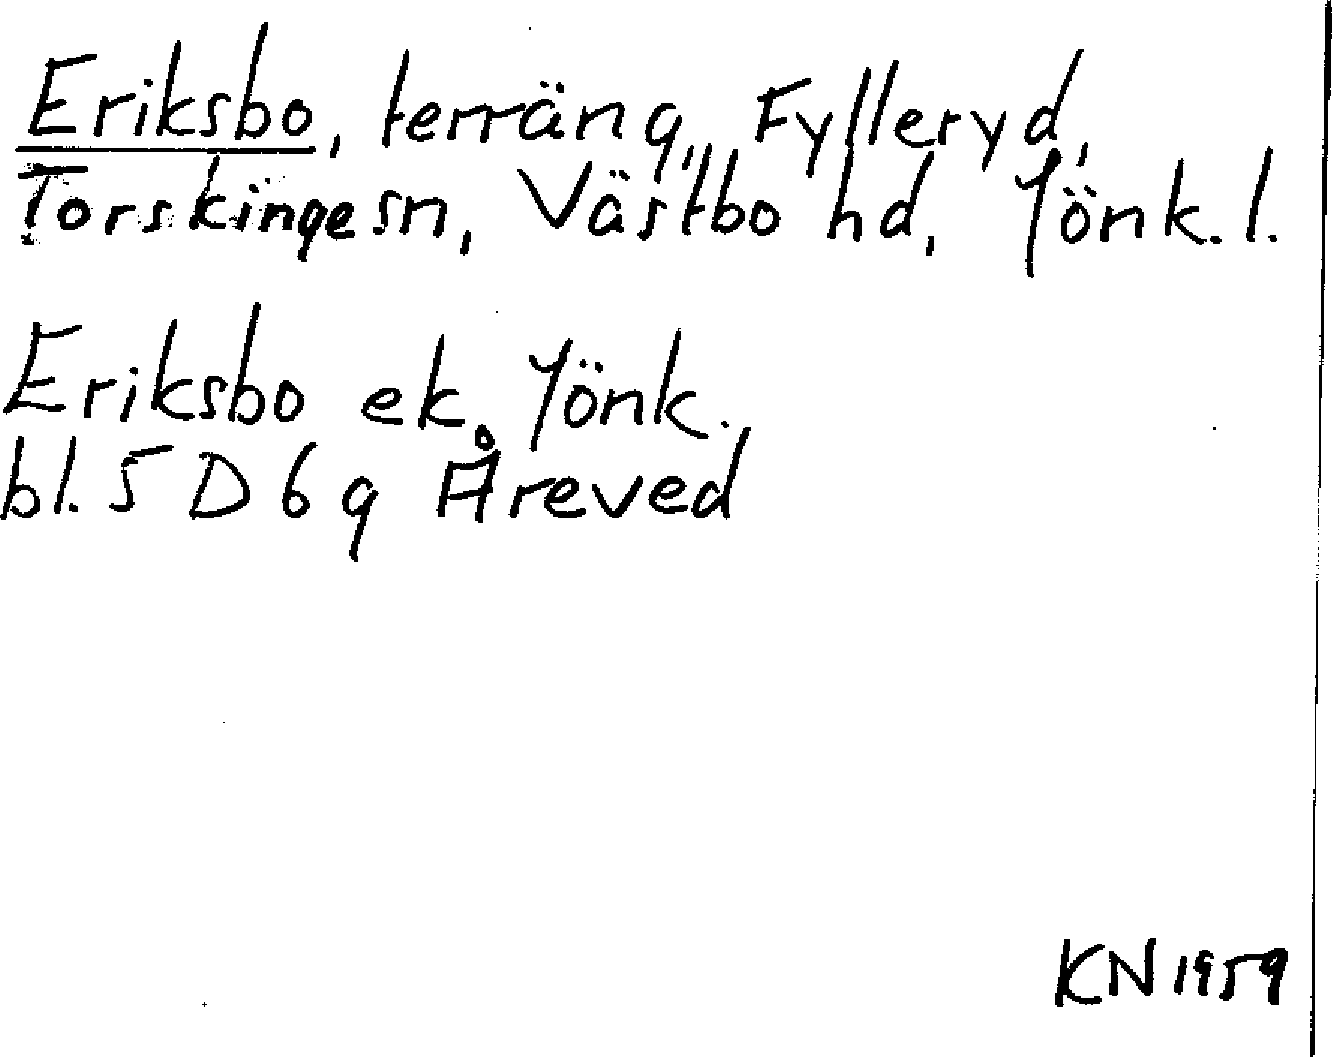 Eriksbo, terräng, Fylleryd,
Torskinge sn, Västbo hd, Jönk. l.
Eriksbo ek. Jönk.
bl. 5 D 6 g Åreved
KN 1959